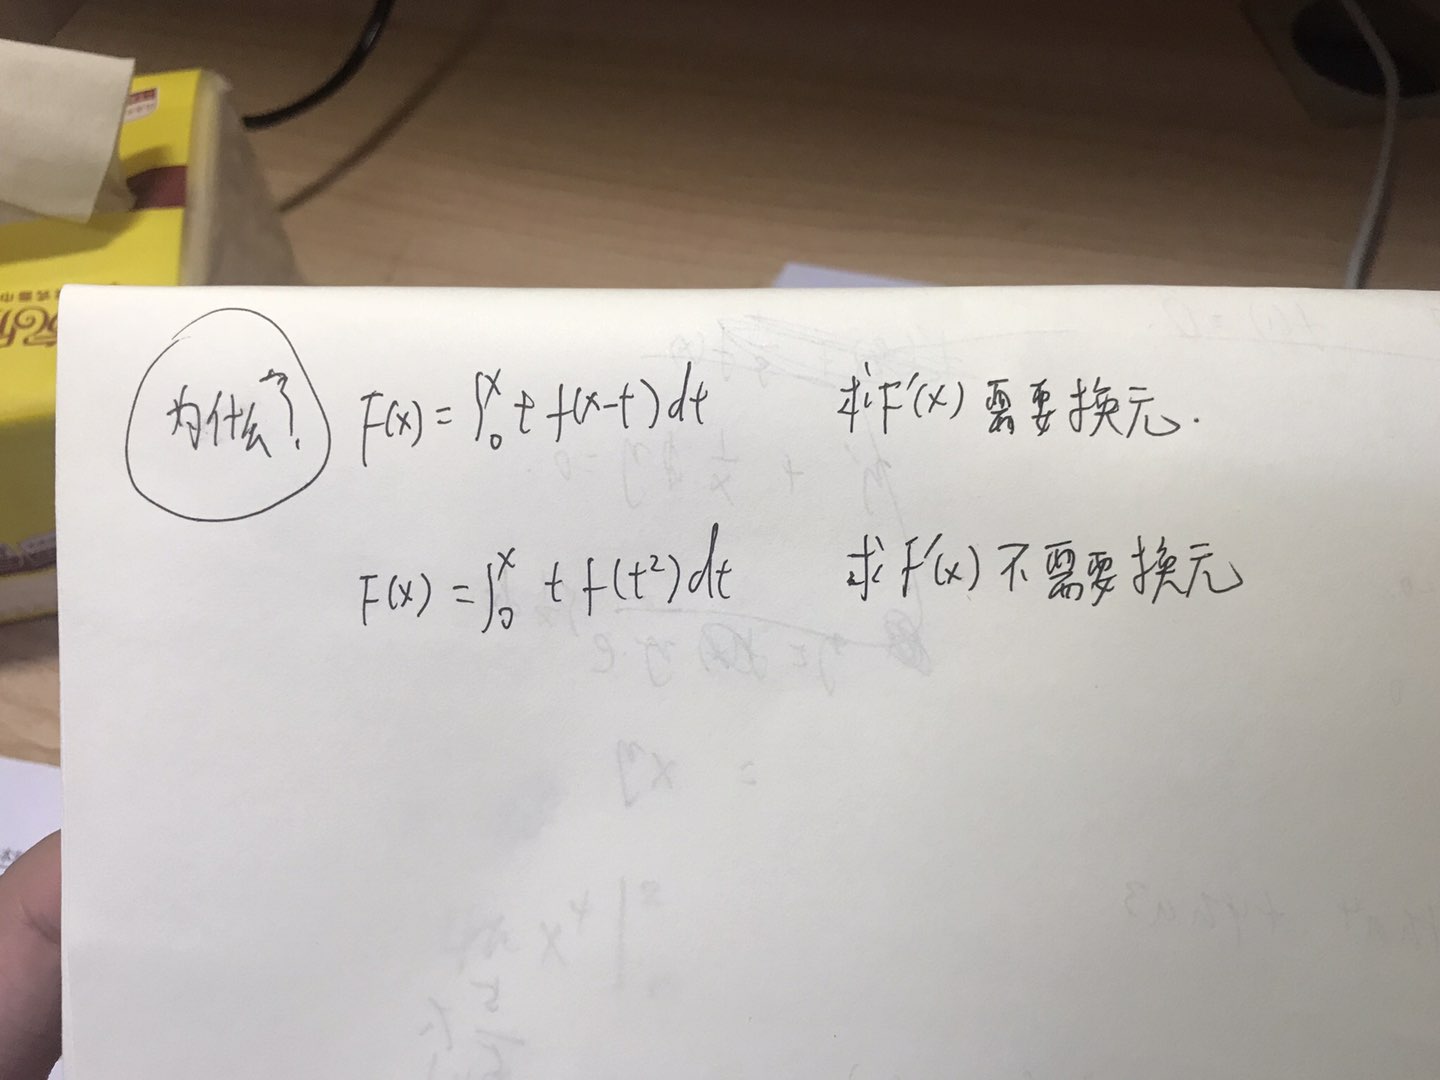 为什么?
F(x) = ∫₀ˣ t f(x-t) dt 求F′(x) 需要换元.
F(x) = ∫₀ˣ t f(t²) dt 求F′(x) 不需要换元